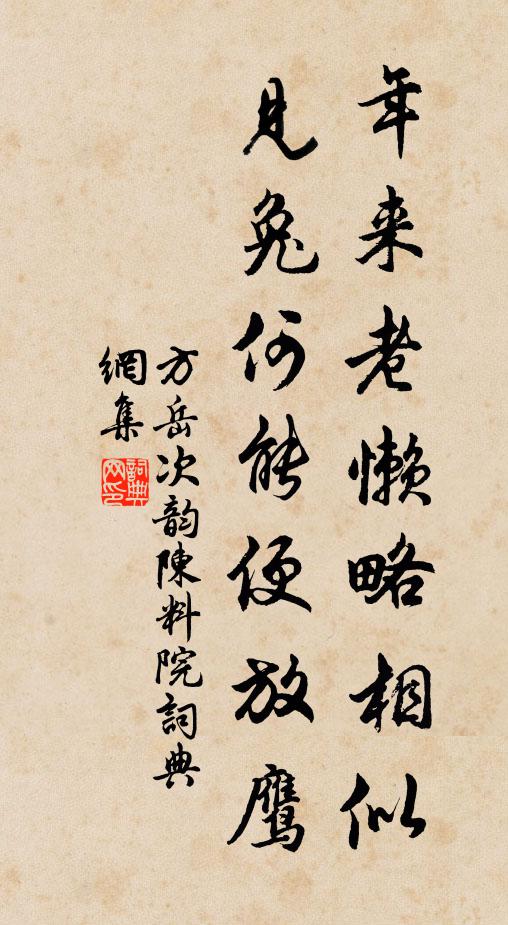 年来老懒略相似
見兔何能便放鷹
方岳次韵陳料院詞典
網集
詞典網印